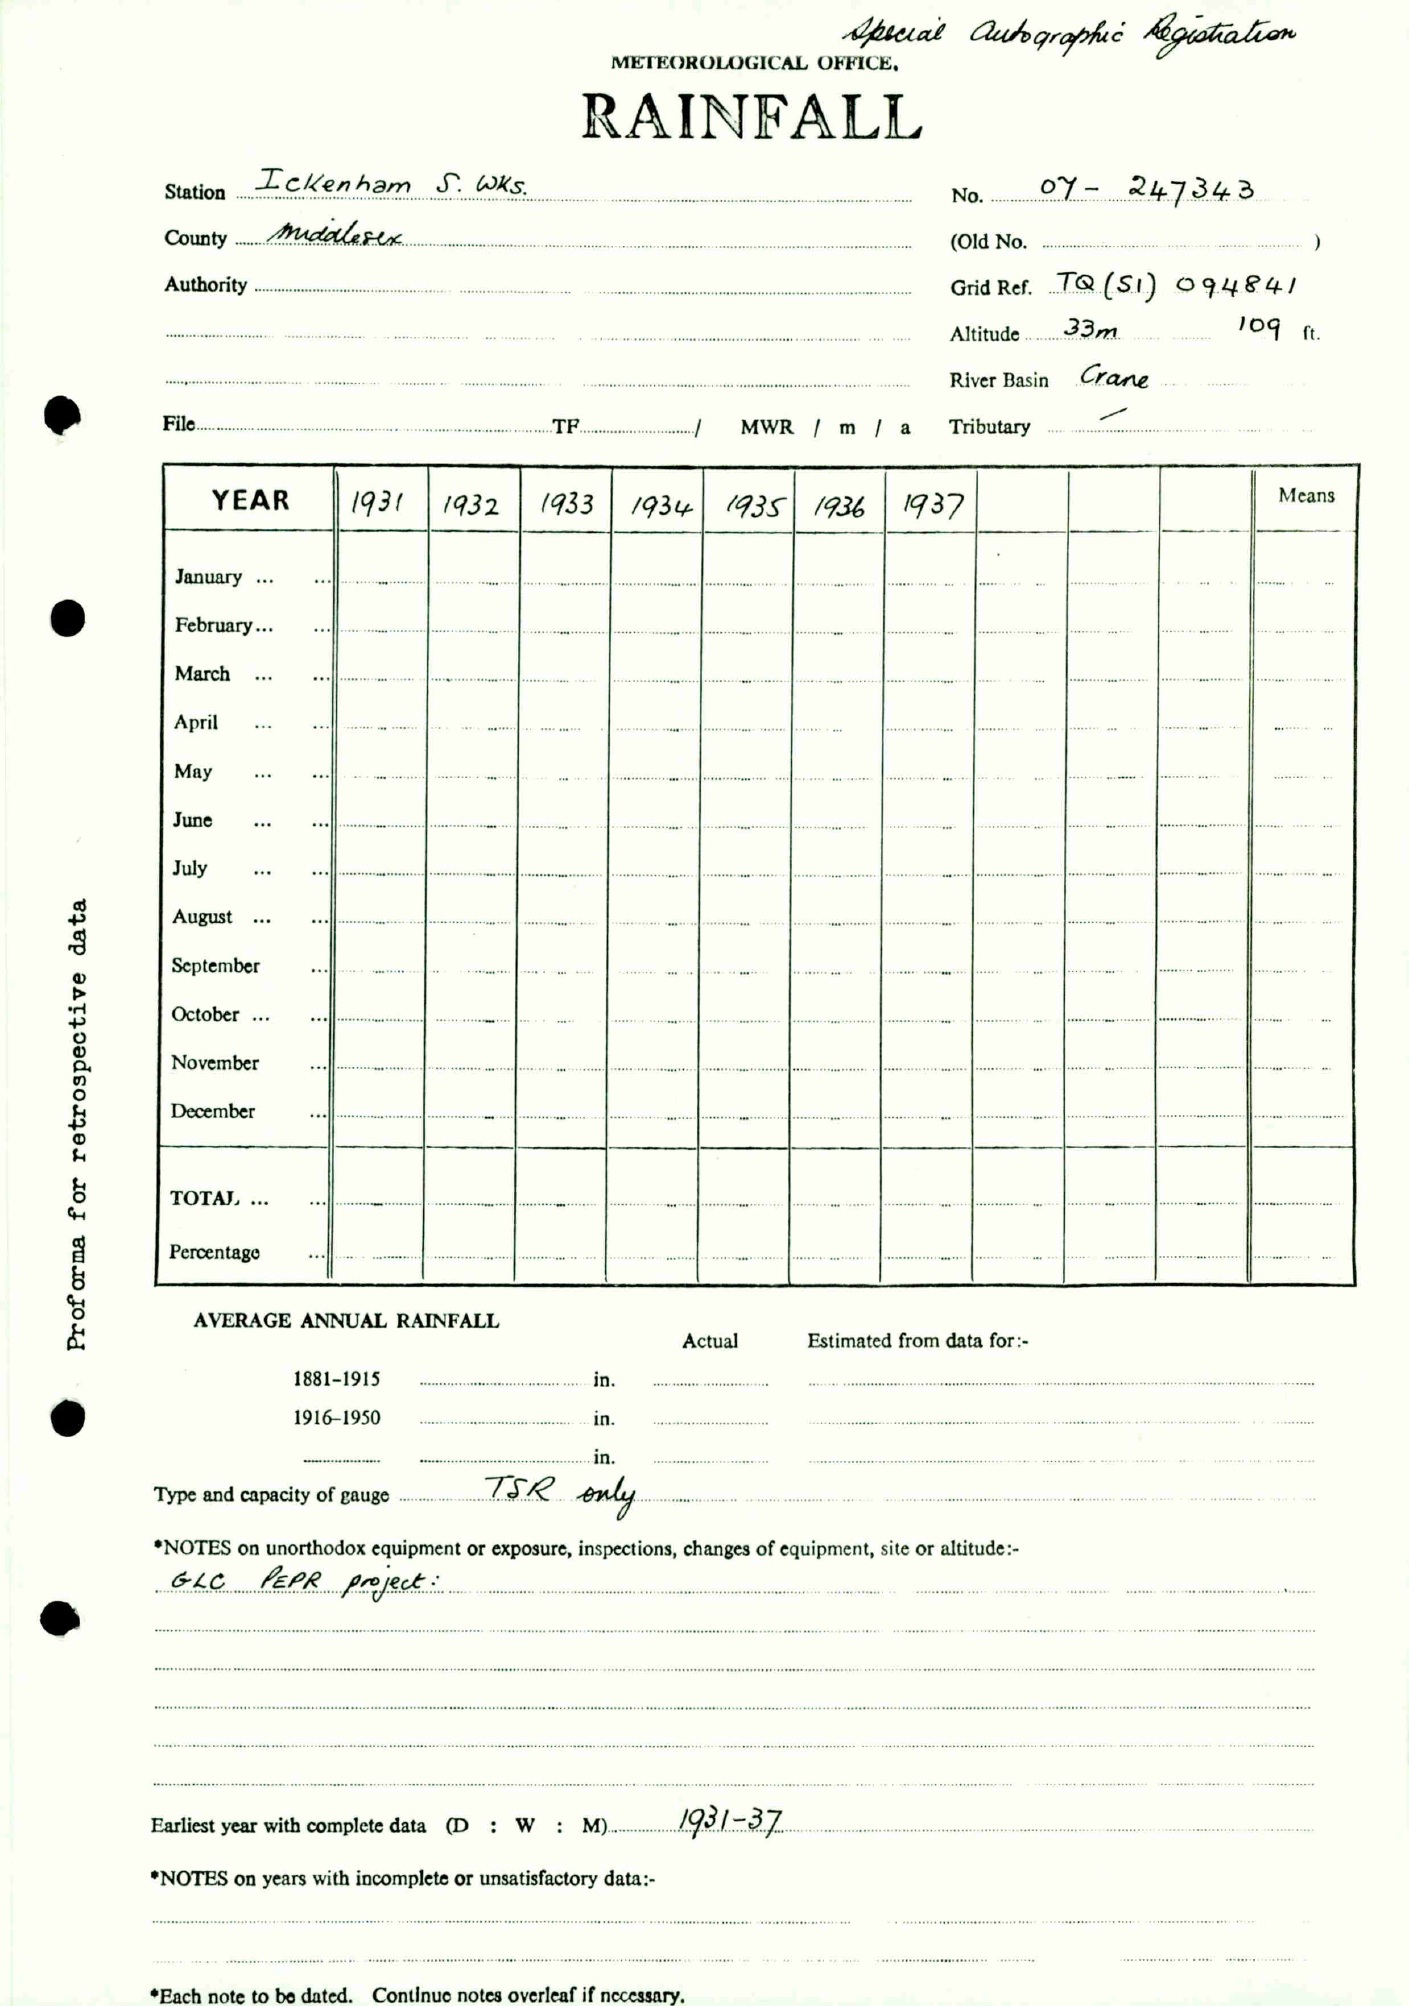 Special Autographic Registration
METEOROLOGICAL OFFICE.
RAINFALL
Station Ickenham S. Wks. No. 07- 247343
County Middlesex (Old No. )
Authority Grid Ref. TQ (51) 094841
Altitude 33m 109 ft.
River Basin Crane
File TF / MWR / m / a Tributary —
YEAR 1931 1932 1933 1934 1935 1936 1937 Means
January ... ...
February... ...
March ... ...
April ... ...
May ... ...
June ... ...
July ... ...
August ... ...
September ...
October ... ...
November ...
December ...
TOTAL ... ...
Percentage ...
Proforma for retrospective data
AVERAGE ANNUAL RAINFALL
Actual Estimated from data for:-
1881-1915 in.
1916-1950 in.
in.
Type and capacity of gauge TSR only
*NOTES on unorthodox equipment or exposure, inspections, changes of equipment, site or altitude:-
GLC PEPR project:
Earliest year with complete data (D : W : M) 1931-37
*NOTES on years with incomplete or unsatisfactory data:-
*Each note to be dated. Continue notes overleaf if necessary.